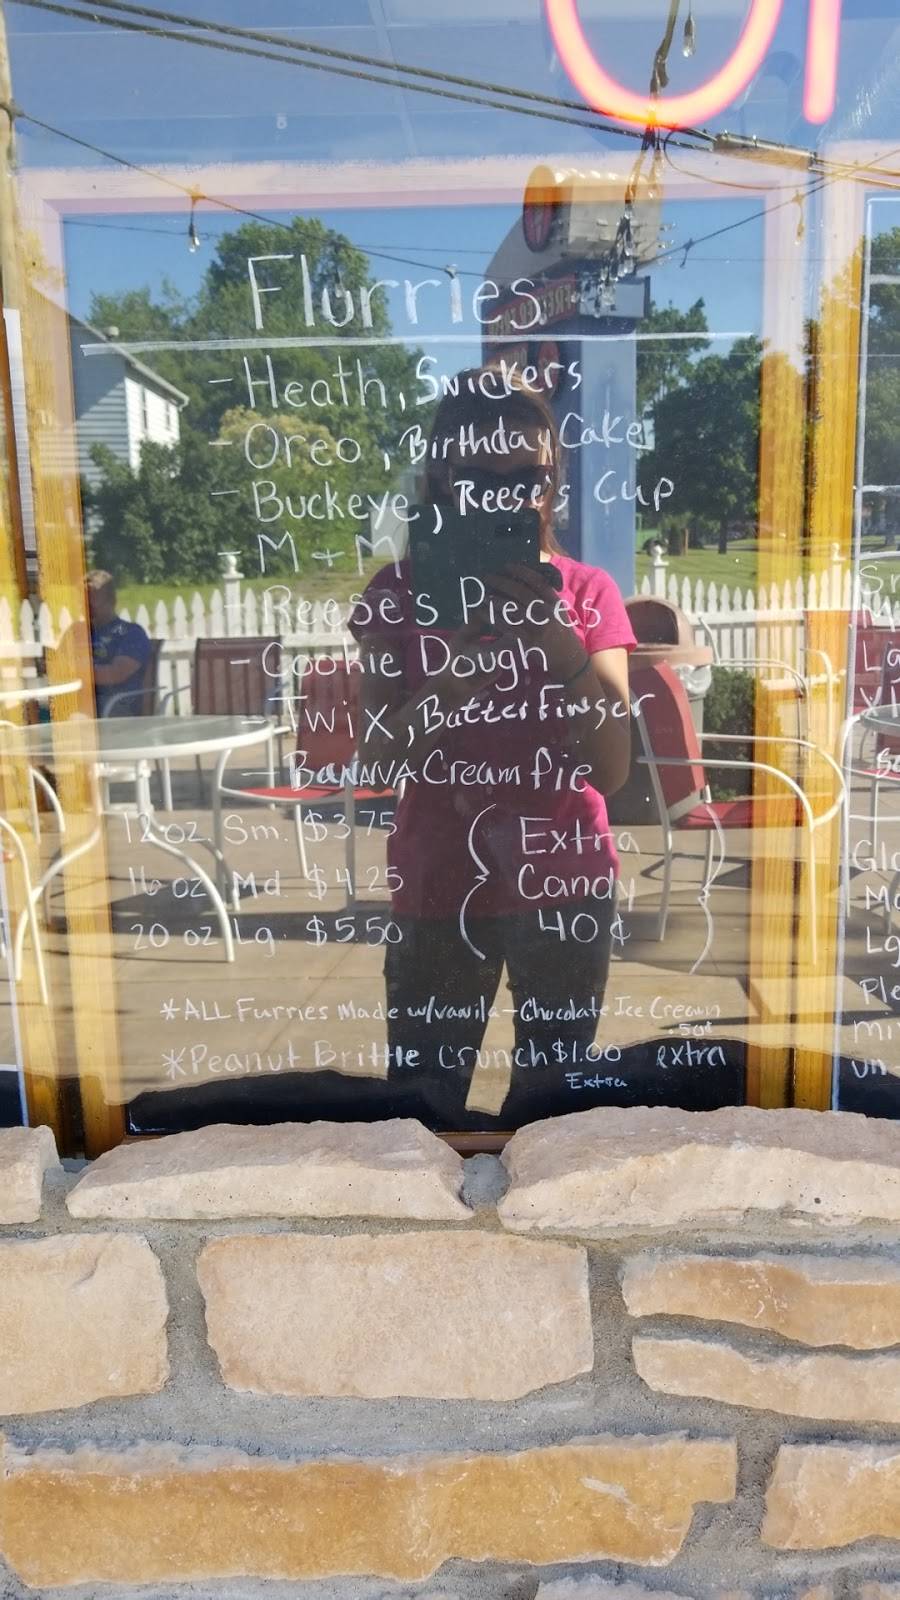 Flurries
- Heath, Snickers
- Oreo, Birthday Cake
- Buckeye, Reese's Cup
- M + M
- Reese's Pieces
- Cookie Dough
- Twix, Butterfinger
- BaNNNA Cream Pie
12 oz. Sm. $3.75
16 oz. Md. $4.25
20 oz Lg. $5.50
Extra
Candy
40¢
*ALL Furries Made w/vanila - Chocolate Ice Cream
.50¢
extra
*Peanut Brittle Crunch $1.00
Extra
Sm
Lg
Lg